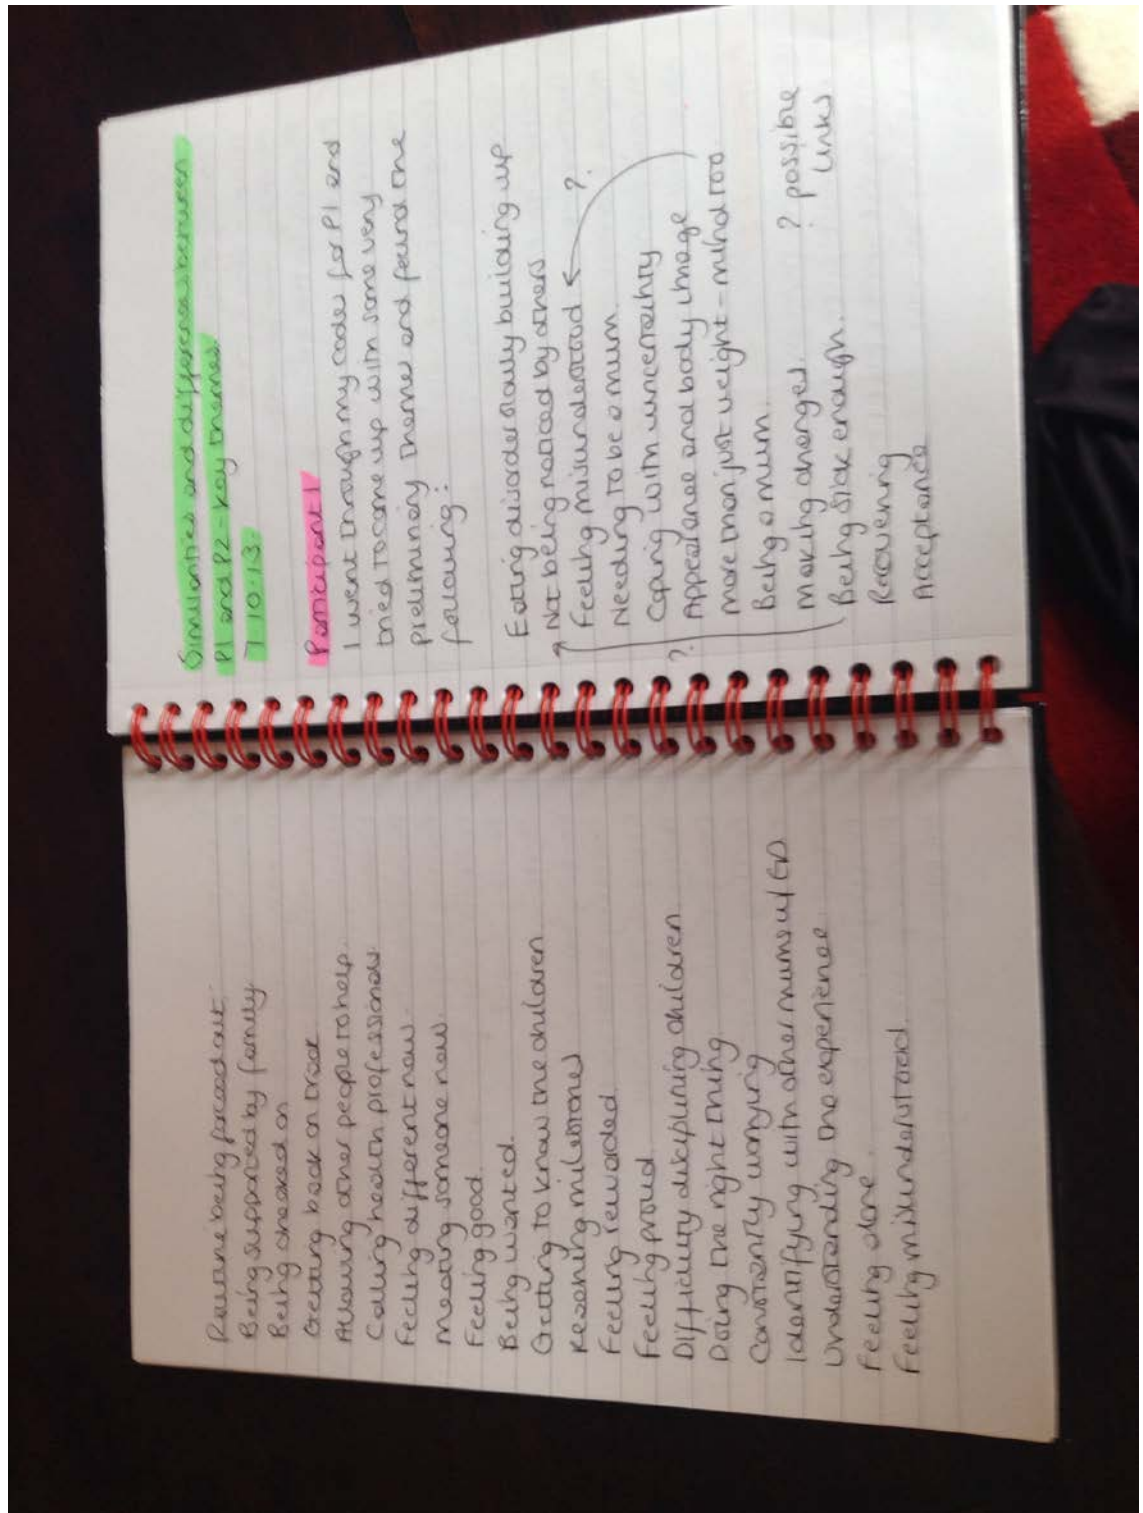 Routine being forced out.
Being supported by family
Being checked on
Getting back on track
Allowing other people to help.
Calling health professionals
Feeling different now.
Meeting someone new.
Feeling good.
Being wanted.
Getting to know the children
Reaching milestones
Feeling rewarded.
Feeling proud.
Difficulty disciplining children
Doing the right thing.
Constantly worrying
Identifying with other mums w/ ED.
Understanding the experience.
Feeling alone.
Feeling misunderstood.
Similarities and differences between
P1 and P2 - key themes.
7.10.13.
Participant 1
I went through my codes for P1 and
tried to come up with some very
preliminary themes and found the
following:
Eating disorder slowly building up
Not being noticed by others
Feeling misunderstood ?.
Needing to be a mum.
Coping with uncertainty
Appearance and body image
?. more than just weight - mind too
Being a mum.
Making changes. ? possible
links
Being sick enough.
Recovering
Acceptance